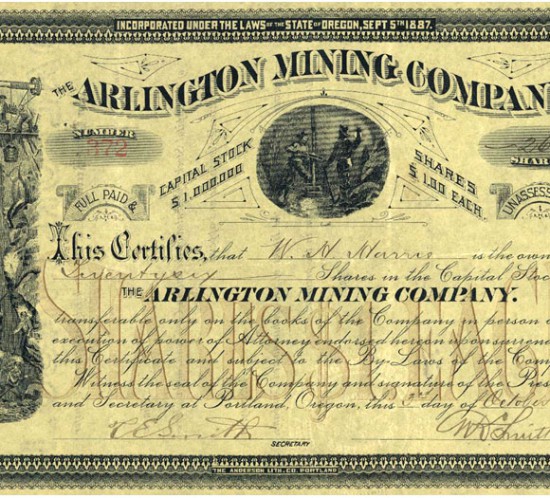 INCORPORATED UNDER THE LAWS OF THE STATE OF OREGON, SEPT 5TH 1887.
THE ARLINGTON MINING COMPAN
NUMBER
772
CAPITAL STOCK
$1,000,000
SHARES
$1.00 EACH.
SHAR
FULL PAID &
UNASSESS
This Certifies, that W. H. Morris is the own
Shares in the Capital Stoc
THE ARLINGTON MINING COMPANY.
transferable only on the books of the Company in person
execution of power of Attorney endorsed hereon upon surren
this Certificate and subject to the By-Laws of the Comp
Witness the seal of the Company and signature of the Pres
and Secretary at Portland, Oregon, this day of October
Smith
SECRETARY
THE ANDERSON LITH. CO. PORTLAND